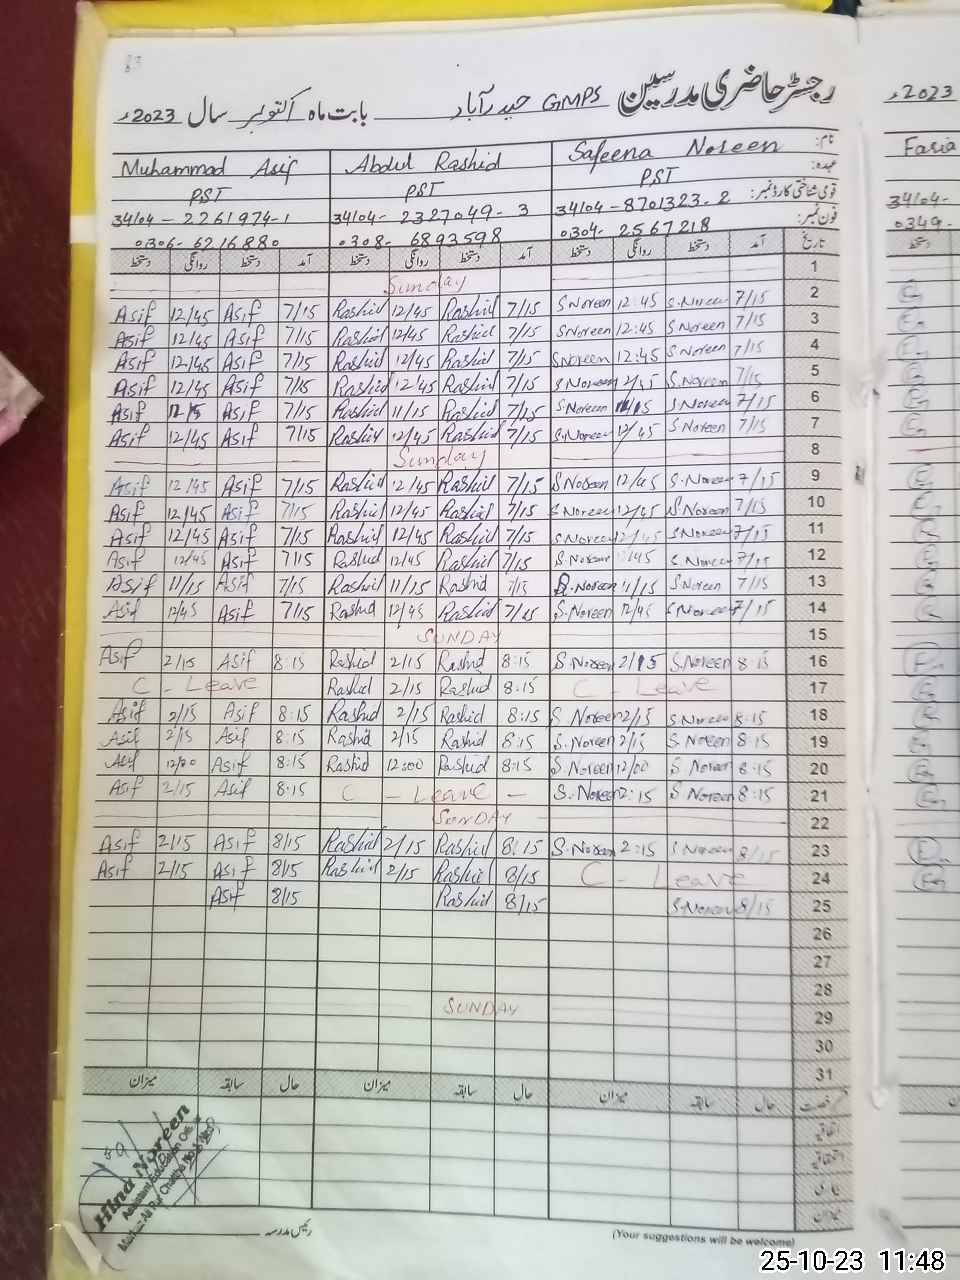 83
رجسٹر حاضری مدرسین GMPS حیدرآباد بابت ماہ اکتوبر سال 2023ء
نام: Safeena Noreen Abdul Rashid Muhammad Asif
عہدہ: PST PST PST
قومی شناختی کارڈ نمبر: 34104-8701323-2 34104-2327049-3 34104-2261974-1
فون نمبر: 0304-2567218 0308-6893598 0306-6216880
تاریخ آمد دستخط روانگی دستخط آمد دستخط روانگی دستخط آمد دستخط روانگی دستخط
Sunday 1
Asif 12/45 Asif 7/15 Rashid 12/45 Rashid 7/15 S.Noreen 12:45 S.Noreen 7/15 2
Asif 12/45 Asif 7/15 Rashid 12/45 Rashid 7/15 S.Noreen 12:45 S.Noreen 7/15 3
Asif 12/45 Asif 7/15 Rashid 12/45 Rashid 7/15 S.Noreen 12:45 S.Noreen 7/15 4
Asif 12/45 Asif 7/15 Rashid 12/45 Rashid 7/15 S.Noreen 12/45 S.Noreen 7/15 5
Asif Asif 7/15 Rashid 11/15 Rashid 7/15 S.Noreen S.Noreen 7/15 6
Asif 12/45 Asif 7/15 Rashid 12/45 Rashid 7/15 S.Noreen 12/45 S.Noreen 7/15 7
Sunday 8
Asif 12/45 Asif 7/15 Rashid 12/45 Rashid 7/15 S.Noreen 12/45 S.Noreen 7/15 9
Asif 12/45 Asif 7/15 Rashid 12/45 Rashid 7/15 S.Noreen 12/45 S.Noreen 7/15 10
Asif 12/45 Asif 7/15 Rashid 12/45 Rashid 7/15 S.Noreen 12/45 S.Noreen 7/15 11
Asif 12/45 Asif 7/15 Rashid 12/45 Rashid 7/15 S.Noreen S.Noreen 7/15 12
Asif 11/15 Asif 7/15 Rashid 11/15 Rashid 7/15 S.Noreen 11/15 S.Noreen 7/15 13
Asif 12/45 Asif 7/15 Rashid 12/45 Rashid 7/15 S.Noreen 12/45 S.Noreen 7/15 14
SUNDAY 15
Asif 2/15 Asif 8:15 Rashid 2/15 Rashid 8:15 S.Noreen 2/15 S.Noreen 8:15 16
C - Leave Rashid 2/15 Rashid 8:15 C - Leave 17
Asif 2/15 Asif 8:15 Rashid 2/15 Rashid 8:15 S.Noreen 2/15 S.Noreen 8:15 18
Asif 2/15 Asif 8:15 Rashid 2/15 Rashid 8:15 S.Noreen 2/15 S.Noreen 8:15 19
Asif 12/00 Asif 8:15 Rashid 12:00 Rashid 8:15 S.Noreen 12/00 S.Noreen 8:15 20
Asif 2/15 Asif 8:15 C - Leave - S.Noreen 2:15 S.Noreen 8:15 21
SUNDAY 22
Asif 2/15 Asif 8/15 Rashid 2/15 Rashid 8:15 S.Noreen 2:15 S.Noreen 8/15 23
Asif 2/15 Asif 8/15 Rashid 2/15 Rashid 8/15 C - Leave 24
Asif 8/15 Rashid 8/15 S.Noreen 8/15 25
26
27
28
SUNDAY 29
30
31
قسم رخصت حال سابقہ میزان حال سابقہ میزان حال سابقہ میزان
اتفاقیہ
استحقاقیہ
بیماری
میزان
Hina Noreen
Assistant Education Officer
رئیس مدرسہ
(Your suggestions will be welcome)
2023ء
Faria
34104-
0349-
دستخط
25-10-23 11:48